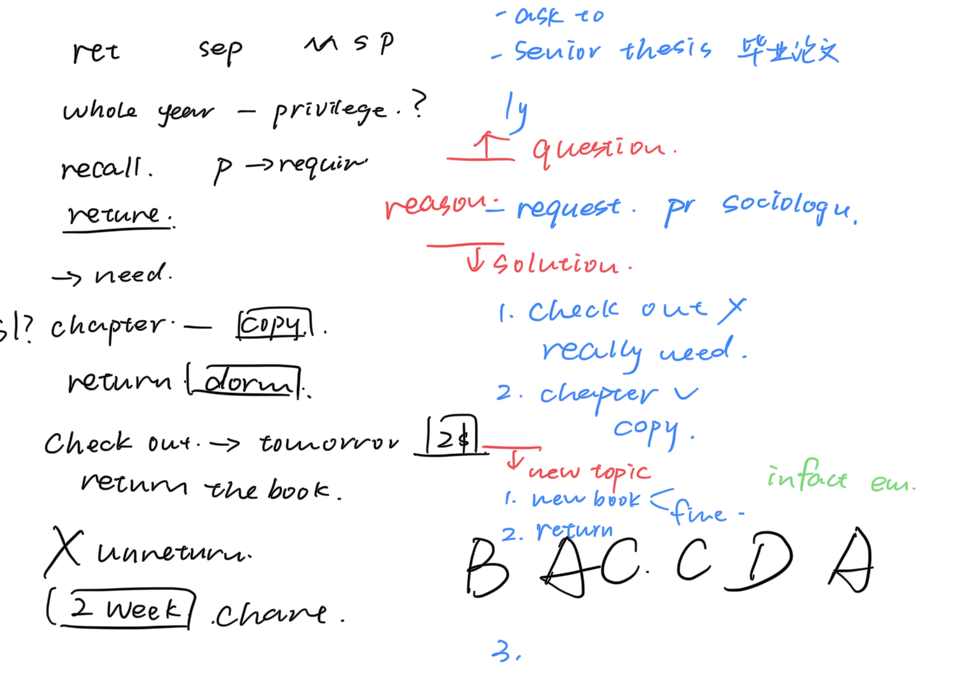 ret sep M S P
whole year – privilege. ?
recall. p → requir
reture.
→ need.
sl? chapter. — copy.
return dorm.
Check out. → tomorror 2$
return the book.
X unreturn.
2 week .chare.
- ask to
- senior thesis 毕业论文
ly
↑ question.
reason. – request. pr sociologu.
↓ solution.
1. Check out X
really need.
2. chapter ✓
copy.
↓ new topic
1. new book < fine -
2. return
infact em.
B A C. C D A
3.